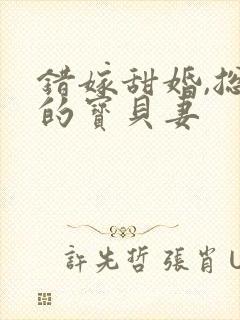 错嫁甜婚,总
的寶貝妻
許先哲 張肖